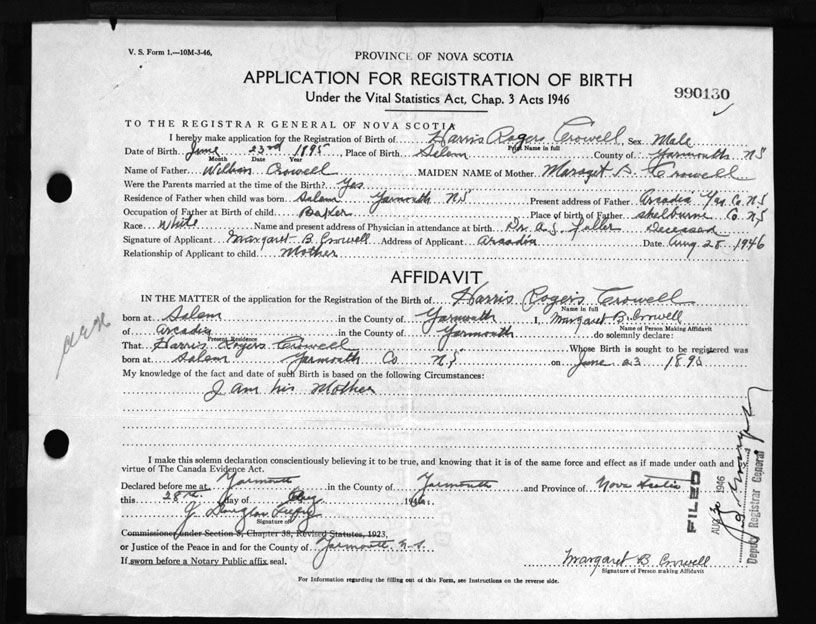 V. S. Form 1.—10M-3-46.
PROVINCE OF NOVA SCOTIA
APPLICATION FOR REGISTRATION OF BIRTH
Under the Vital Statistics Act, Chap. 3 Acts 1946
990130
TO THE REGISTRAR GENERAL OF NOVA SCOTIA
I hereby make application for the Registration of Birth of Harris Rogers Crowell, Sex Male
Print Name in full
Date of Birth June 23rd 1895 Place of Birth Salem County of Yarmouth NS
Month Date Year
Name of Father William Crowell MAIDEN NAME of Mother Margaret B. Crowell
Were the Parents married at the time of the Birth? Yes
Residence of Father when child was born Salem Yarmouth NS Present address of Father Arcadia Yar Co NS
Occupation of Father at Birth of child Place of birth of Father Shelburne Co NS
Race White Name and present address of Physician in attendance at birth Dr. A. S. Fuller Deceased
Signature of Applicant Margaret B Crowell Address of Applicant Arcadia Date Aug 28 1946
Relationship of Applicant to child Mother
AFFIDAVIT
IN THE MATTER of the application for the Registration of the Birth of Harris Rogers Crowell
Name in full
born at Salem in the County of Yarmouth I, Margaret B. Crowell
Name of Person Making Affidavit
of Arcadia in the County of Yarmouth do solemnly declare:
Present Residence
That Harris Rogers Crowell Whose Birth is sought to be registered was
born at Salem Yarmouth Co NS on June 23 1895
My knowledge of the fact and date of such Birth is based on the following Circumstances:
I am his Mother
I make this solemn declaration conscientiously believing it to be true, and knowing that it is of the same force and effect as if made under oath and by
virtue of The Canada Evidence Act.
Declared before me at Yarmouth in the County of Yarmouth and Province of Nova Scotia
this 28th day of Aug 1946
J. Douglas
Signature of
Commissioner under Section 8, Chapter 38, Revised Statutes, 1923,
or Justice of the Peace in and for the County of Yarmouth N.S.
If sworn before a Notary Public affix seal.
Margaret B Crowell
Signature of Person making Affidavit
For Information regarding the filling out of this Form, see Instructions on the reverse side.
FILED
AUG 30 1946
Deputy Registrar General